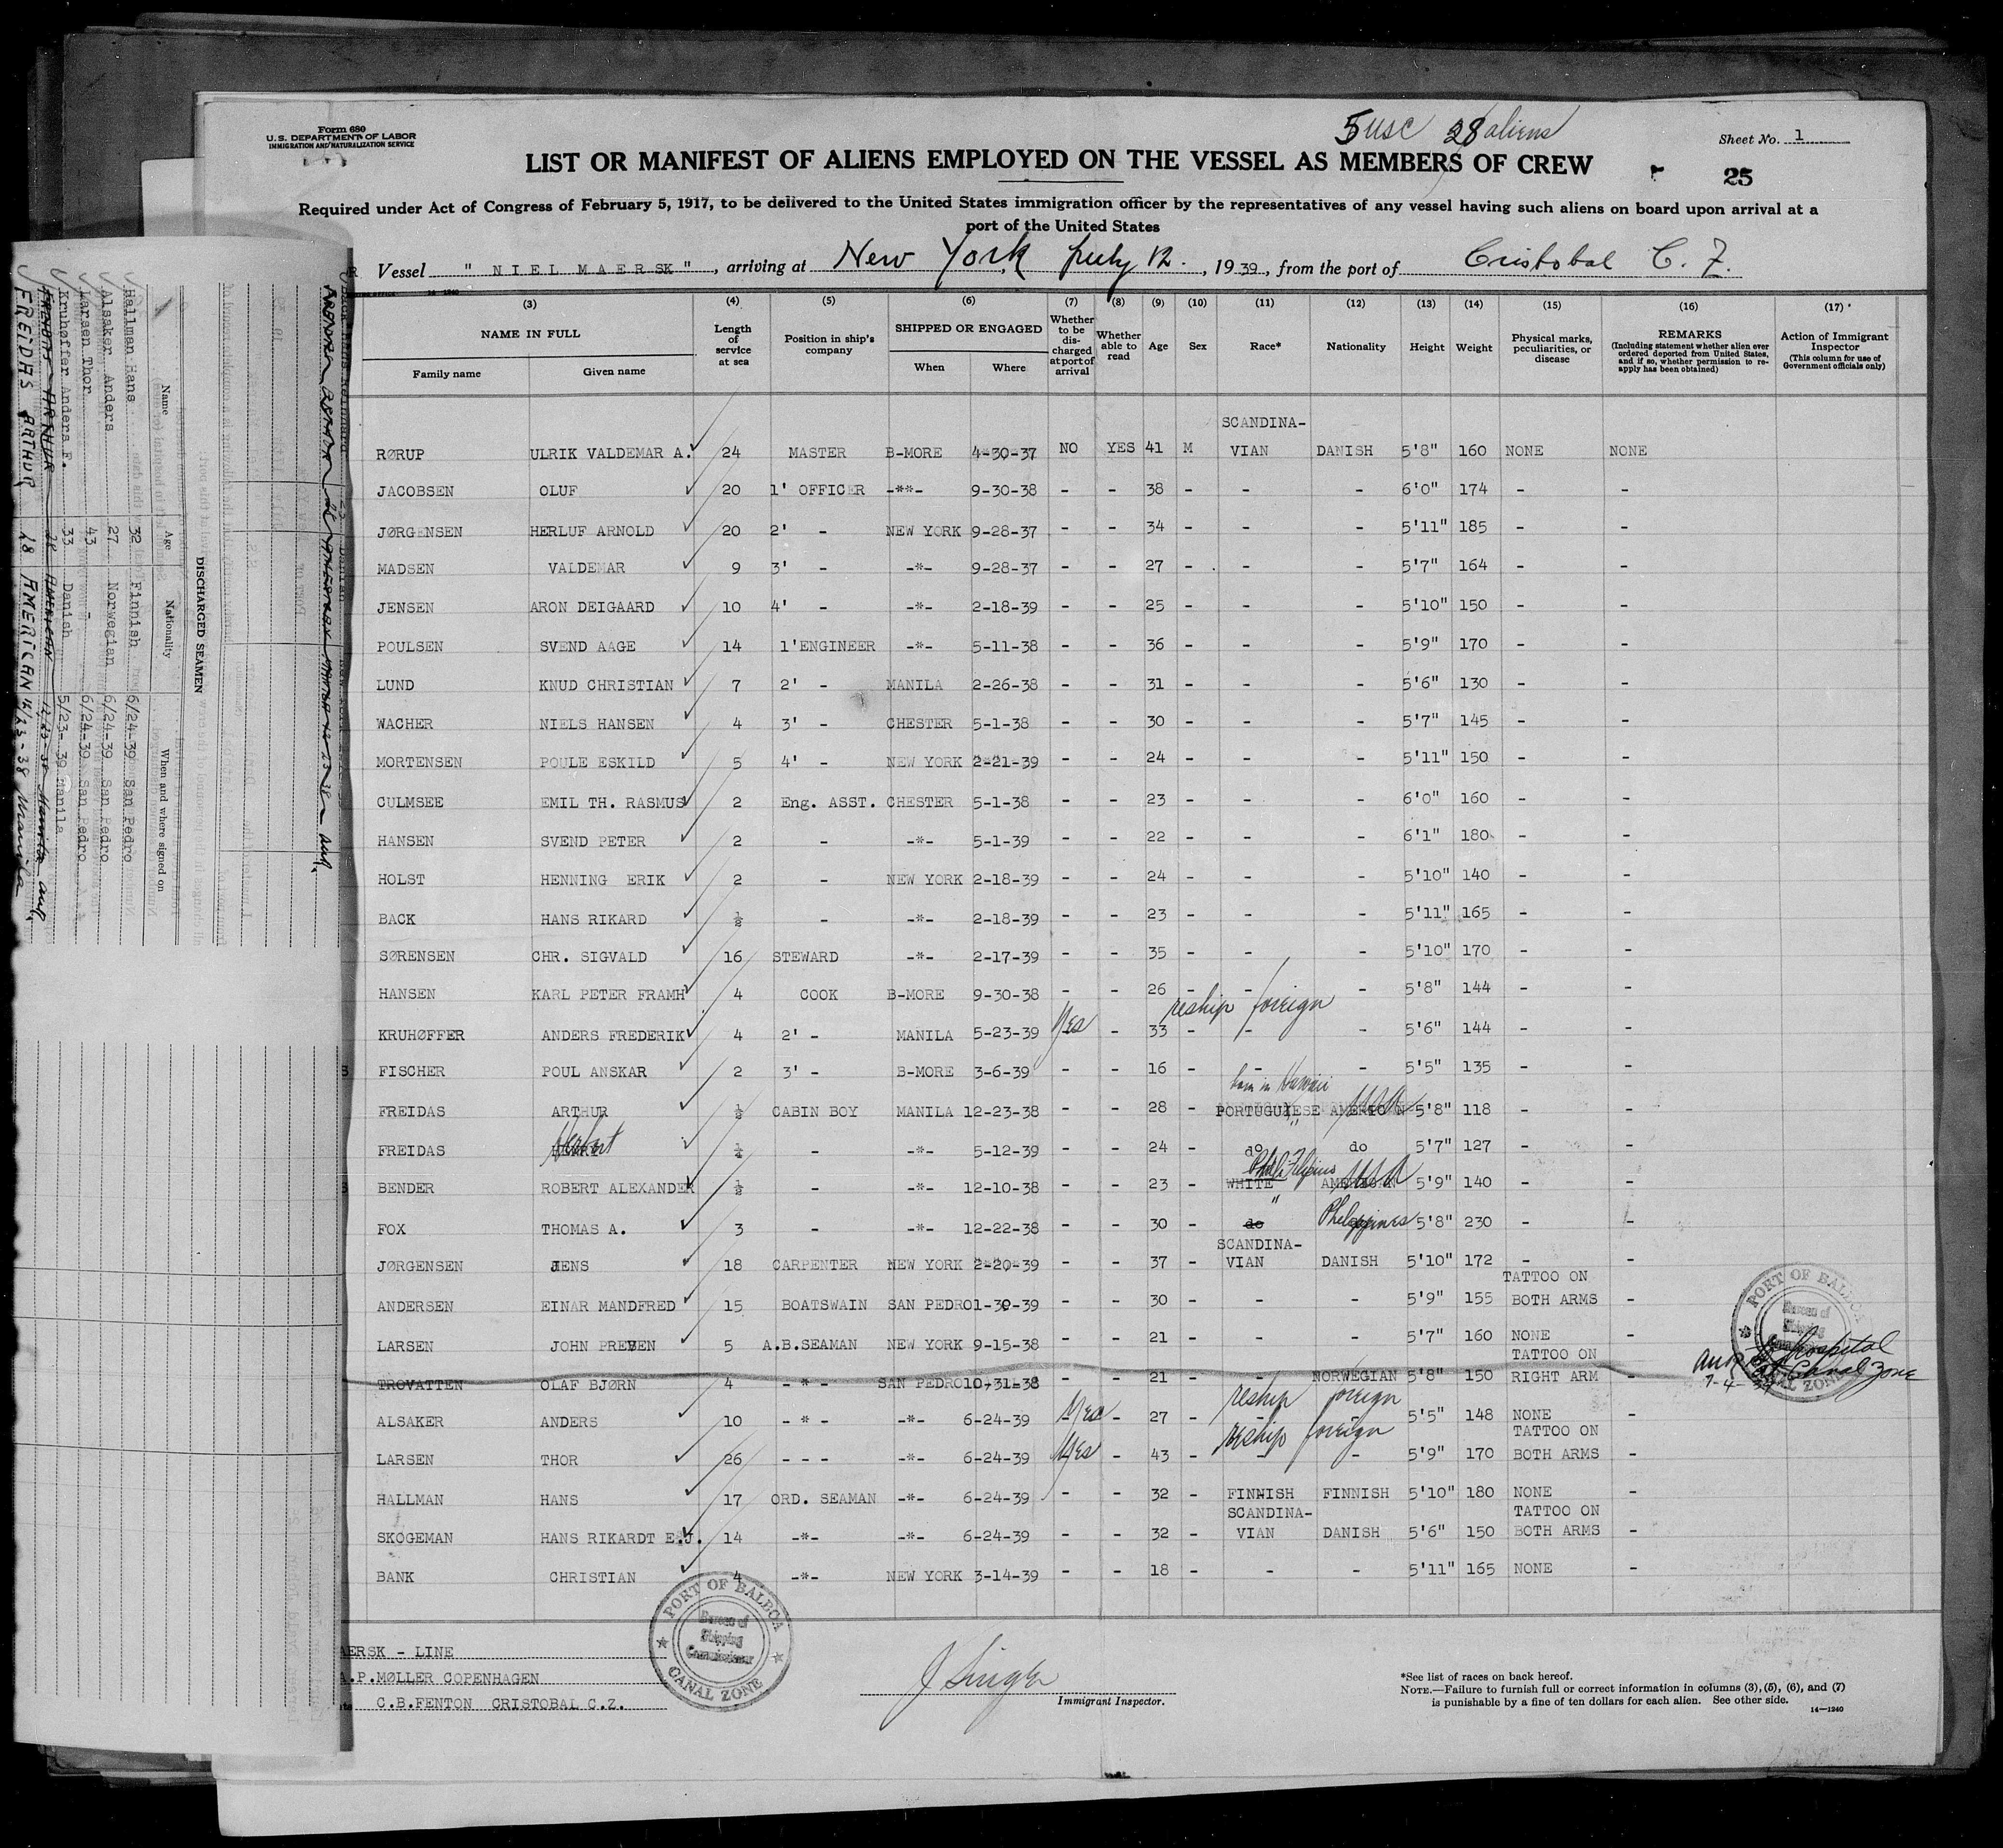 Form 680
U.S. DEPARTMENT OF LABOR
IMMIGRATION AND NATURALIZATION SERVICE
5 USC 28 aliens
Sheet No. 1
LIST OR MANIFEST OF ALIENS EMPLOYED ON THE VESSEL AS MEMBERS OF CREW
25
Required under Act of Congress of February 5, 1917, to be delivered to the United States immigration officer by the representatives of any vessel having such aliens on board upon arrival at a
port of the United States
Vessel " NIEL MAERSK ", arriving at New York July 12., 1939, from the port of Cristobal C. Z.
(3) (4) (5) (6) (7) (8) (9) (10) (11) (12) (13) (14) (15) (16) (17)
NAME IN FULL
Family name Given name
Length of service at sea
Position in ship's company
SHIPPED OR ENGAGED
When Where
Whether to be discharged at port of arrival
Whether able to read
Age Sex Race* Nationality Height Weight
Physical marks, peculiarities, or disease
REMARKS
(Including statement whether alien ever ordered deported from United States, and if so, whether permission to reapply has been obtained)
Action of Immigrant Inspector
(This column for use of Government officials only)
SCANDINA-
RØRUP ULRIK VALDEMAR A. 24 MASTER B-MORE 4-30-37 NO YES 41 M VIAN DANISH 5'8" 160 NONE NONE
JACOBSEN OLUF 20 1' OFFICER -**- 9-30-38 - - 38 - - - 6'0" 174 - -
JØRGENSEN HERLUF ARNOLD 20 2' - NEW YORK 9-28-37 - - 34 - - - 5'11" 185 - -
MADSEN VALDEMAR 9 3' - -*- 9-28-37 - - 27 - - - 5'7" 164 - -
JENSEN ARON DEIGAARD 10 4' - -*- 2-18-39 - - 25 - - - 5'10" 150 - -
POULSEN SVEND AAGE 14 1'ENGINEER -*- 5-11-38 - - 36 - - - 5'9" 170 - -
LUND KNUD CHRISTIAN 7 2' - MANILA 2-26-38 - - 31 - - - 5'6" 130 - -
WACHER NIELS HANSEN 4 3' - CHESTER 5-1-38 - - 30 - - - 5'7" 145 - -
MORTENSEN POULE ESKILD 5 4' - NEW YORK 2-21-39 - - 24 - - - 5'11" 150 - -
CULMSEE EMIL TH. RASMUS 2 Eng. ASST. CHESTER 5-1-38 - - 23 - - - 6'0" 160 - -
HANSEN SVEND PETER 2 - -*- 5-1-39 - - 22 - - - 6'1" 180 - -
HOLST HENNING ERIK 2 - NEW YORK 2-18-39 - - 24 - - - 5'10" 140 - -
BACK HANS RIKARD ½ - -*- 2-18-39 - - 23 - - - 5'11" 165 - -
SØRENSEN CHR. SIGVALD 16 STEWARD -*- 2-17-39 - - 35 - - - 5'10" 170 - -
HANSEN KARL PETER FRAMH 4 COOK B-MORE 9-30-38 - - 26 - - - 5'8" 144 - -
reship foreign
KRUHØFFER ANDERS FREDERIK 4 2' - MANILA 5-23-39 Yes - 33 - - - 5'6" 144 - -
FISCHER POUL ANSKAR 2 3' - B-MORE 3-6-39 - - 16 - - - 5'5" 135 - -
born in Hawaii
FREIDAS ARTHUR ½ CABIN BOY MANILA 12-23-38 - - 28 - PORTUGUESE AMERICAN USA 5'8" 118 - -
FREIDAS Herbert ¼ - -*- 5-12-39 - - 24 - do do 5'7" 127 - -
Filipino
BENDER ROBERT ALEXANDER ½ - -*- 12-10-38 - - 23 - WHITE AMERICAN USA 5'9" 140 - -
FOX THOMAS A. 3 - -*- 12-22-38 - - 30 - do " Philippines 5'8" 230 - -
SCANDINA-
JØRGENSEN JENS 18 CARPENTER NEW YORK 2-20-39 - - 37 - VIAN DANISH 5'10" 172 - -
TATTOO ON
ANDERSEN EINAR MANDFRED 15 BOATSWAIN SAN PEDRO 1-30-39 - - 30 - - - 5'9" 155 BOTH ARMS -
LARSEN JOHN PREBEN 5 A.B.SEAMAN NEW YORK 9-15-38 - - 21 - - - 5'7" 160 NONE -
TATTOO ON
TROVATTEN OLAF BJØRN 4 - * - SAN PEDRO 10-31-38 - - 21 - - NORWEGIAN 5'8" 150 RIGHT ARM -
Hospital
Canal Zone
7-4-39
reship foreign
ALSAKER ANDERS 10 - * - -*- 6-24-39 Yes - 27 - - - 5'5" 148 NONE -
reship foreign
TATTOO ON
LARSEN THOR 26 - - - -*- 6-24-39 Yes - 43 - - - 5'9" 170 BOTH ARMS -
HALLMAN HANS 17 ORD. SEAMAN -*- 6-24-39 - - 32 - FINNISH FINNISH 5'10" 180 NONE -
SCANDINA- TATTOO ON
SKOGEMAN HANS RIKARDT E.J. 14 -*- -*- 6-24-39 - - 32 - VIAN DANISH 5'6" 150 BOTH ARMS -
BANK CHRISTIAN 4 -*- NEW YORK 3-14-39 - - 18 - - - 5'11" 165 NONE -
PORT OF BALBOA
Bureau of
Shipping
Commissioner
CANAL ZONE
PORT OF BALBOA
Bureau of
Shipping
Commissioner
CANAL ZONE
AERSK - LINE
A.P.MØLLER COPENHAGEN
C.B.FENTON CRISTOBAL C.Z.
J Singer
Immigrant Inspector.
*See list of races on back hereof.
NOTE.—Failure to furnish full or correct information in columns (3), (5), (6), and (7)
is punishable by a fine of ten dollars for each alien. See other side.
14—1240
DISCHARGED SEAMEN
Name Age Nationality When and where signed on
Hallman Hans 32 Finnish 6/24-39 San Pedro
Alsaker Anders 27 Norwegian 6/24-39 San Pedro
Larsen Thor 43 - 6/24-39 San Pedro
Kruhøffer Anders F. 33 Danish 5/23-39 Manila
FREIDAS ARTHUR 28 AMERICAN 12/23-38 Manila
FREIDAS ARTHUR 28 AMERICAN 12/23-38 Manila